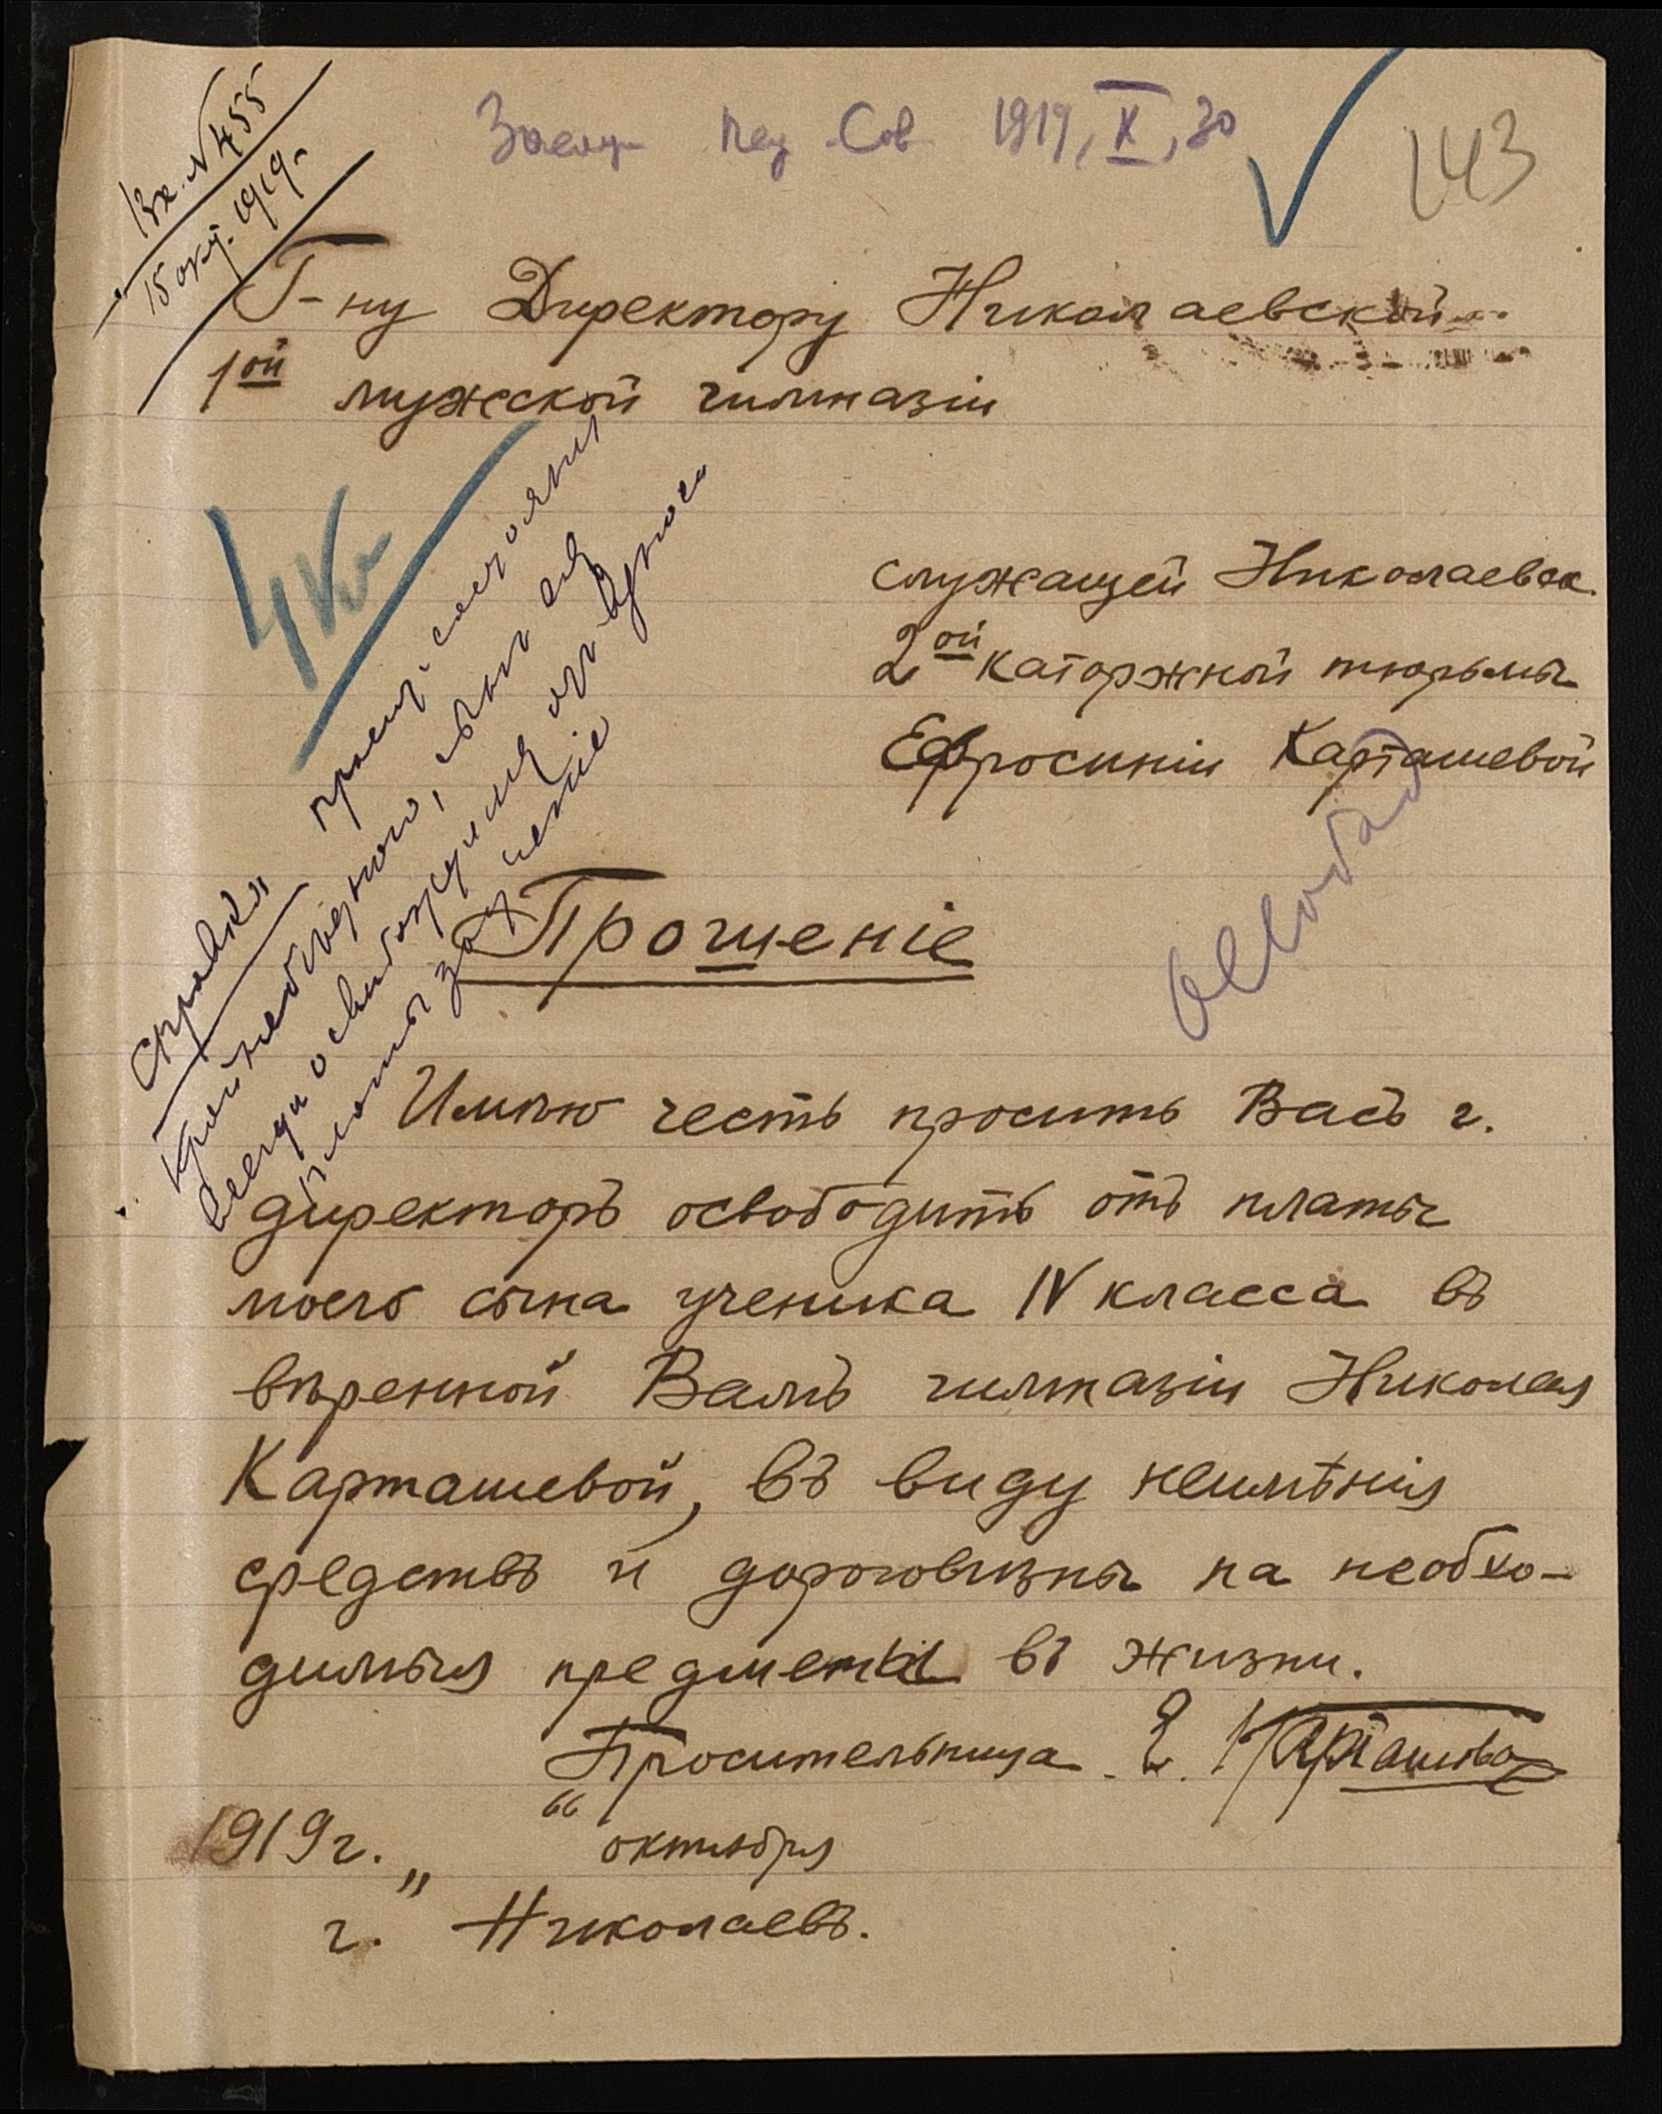 Вх. № 455
15 окт. 1919 г.
Засед. Пед. Сов. 1919, X, 30
143
Г-ну Директору Николаевской
1ой мужской гимназіи
4 кл
служащей Николаевск.
2ой каторжной тюрьмы
Ефросиніи Карташевой
освобод
Справка
просит. состоянія
крайне бѣдного, сына ея
всегда освобождали от взноса
платы за ученіе
Прошеніе
Имѣю честь просить Васъ г.
директоръ освободить отъ платы
моего сына ученика IV класса въ
вѣренной Вамъ гимназіи Николая
Карташевой, въ виду неимѣнія
средствъ и дороговизны на необхо-
димыя предметы въ жизни.
Просительница Е. Карташева
1919 г. „ “ октября
г. Николаевъ.